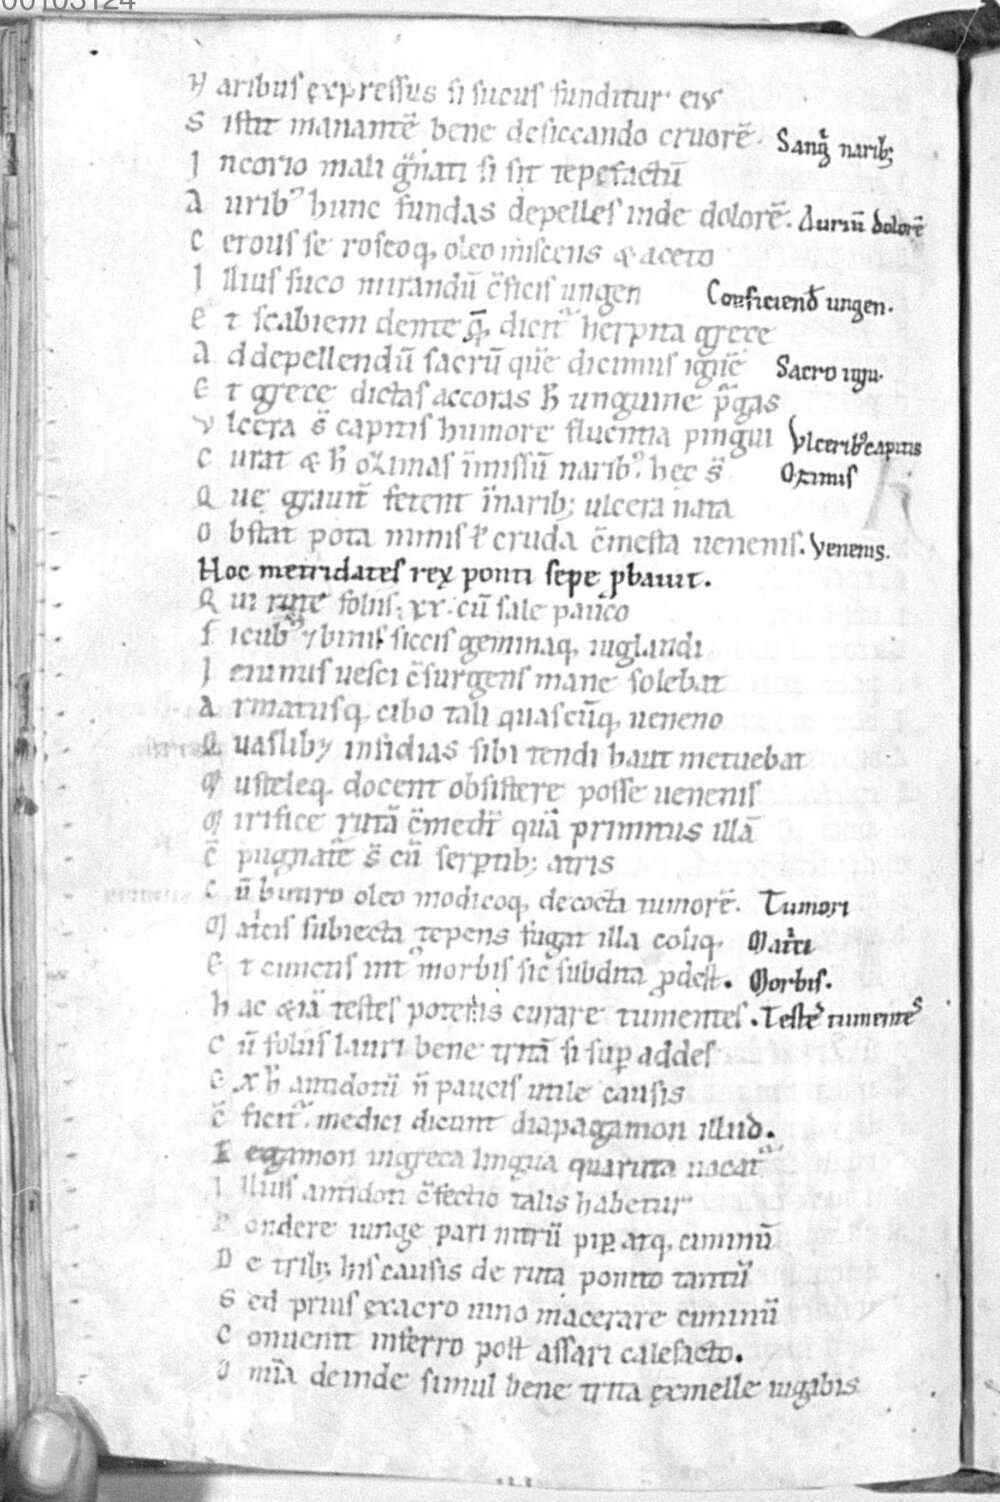 00103124
N aribus expressus si sucus funditur eiꝰ
S istit manantē bene desiccando cruorē. Sanḡ narib;
I n corio mali gͣnati si sit tepefactū
A uribꝰ hunc fundas depelles inde dolorē. Auriū dolorē
C erousse roseoq, oleo miscens & aceto
I llius suco mirandū c̄ficis ungen Conficiend ungen.
E t scabiem dente q̄, dicit᷑ herpita grece
A d depellendū sacrū quē dicimus ignē Sacro igni.
E t grece dictas accoras h̄ unguine p̄gas
V lcera s̄ capitis humore fluentia pingui Vlceribꝰ capitis
C urat & h̄ ozimas īmissū naribꝰ hec s̄ Ozimis
Q ue grauit̄ fetent īnarib; ulcera nata
O bstat pota nimis ł cruda c̄mesta uenenis. Venenis.
Hoc metridates rex ponti sepe ꝓbauit.
Q ui rute foliis .xx. cū sale pauco
F icubꝰ 7 binis siccis geminaq, iuglandi
I eiunus uesci c̄surgens mane solebat
A rmatusq, cibo tali quascūq, ueneno
Q uaslib; insidias sibi tendi haut metuebat
M usteleq, docent obsistere posse uenenis
M irifice rutā c̄medt̄ quā primitus illā
C̄ pugnatē s̄ cū serp̄tib; atris
C ū butiro oleo modicoq, decocta tumorē. Tumori
M atͥcis subiecta tepens fugat illa coliq, Matͥci
E t cunctis intꝰ morbis sic subdita ꝓdest. Morbis.
H ac & iā testes poteris curare tumentes. Testes tumentes
C ū foliis lauri bene tritā si suꝑ addes
E x h̄ antidotū n̄ paucis utile causis
C̄ ficit᷑. medici dicunt diapagamon illud.
P egamon in greca lingua qua ruta uocat᷑
I llius antidoti c̄fectio talis habetur
P ondere iunge pari nitrū piꝑ atq, ciminū
D e trib; his causis de ruta ponito tantū
S ed prius ex acro uino macerare ciminū
C onuenit inferro post assari calefacto.
O mīa deinde simul bene trita ex melle iugabis